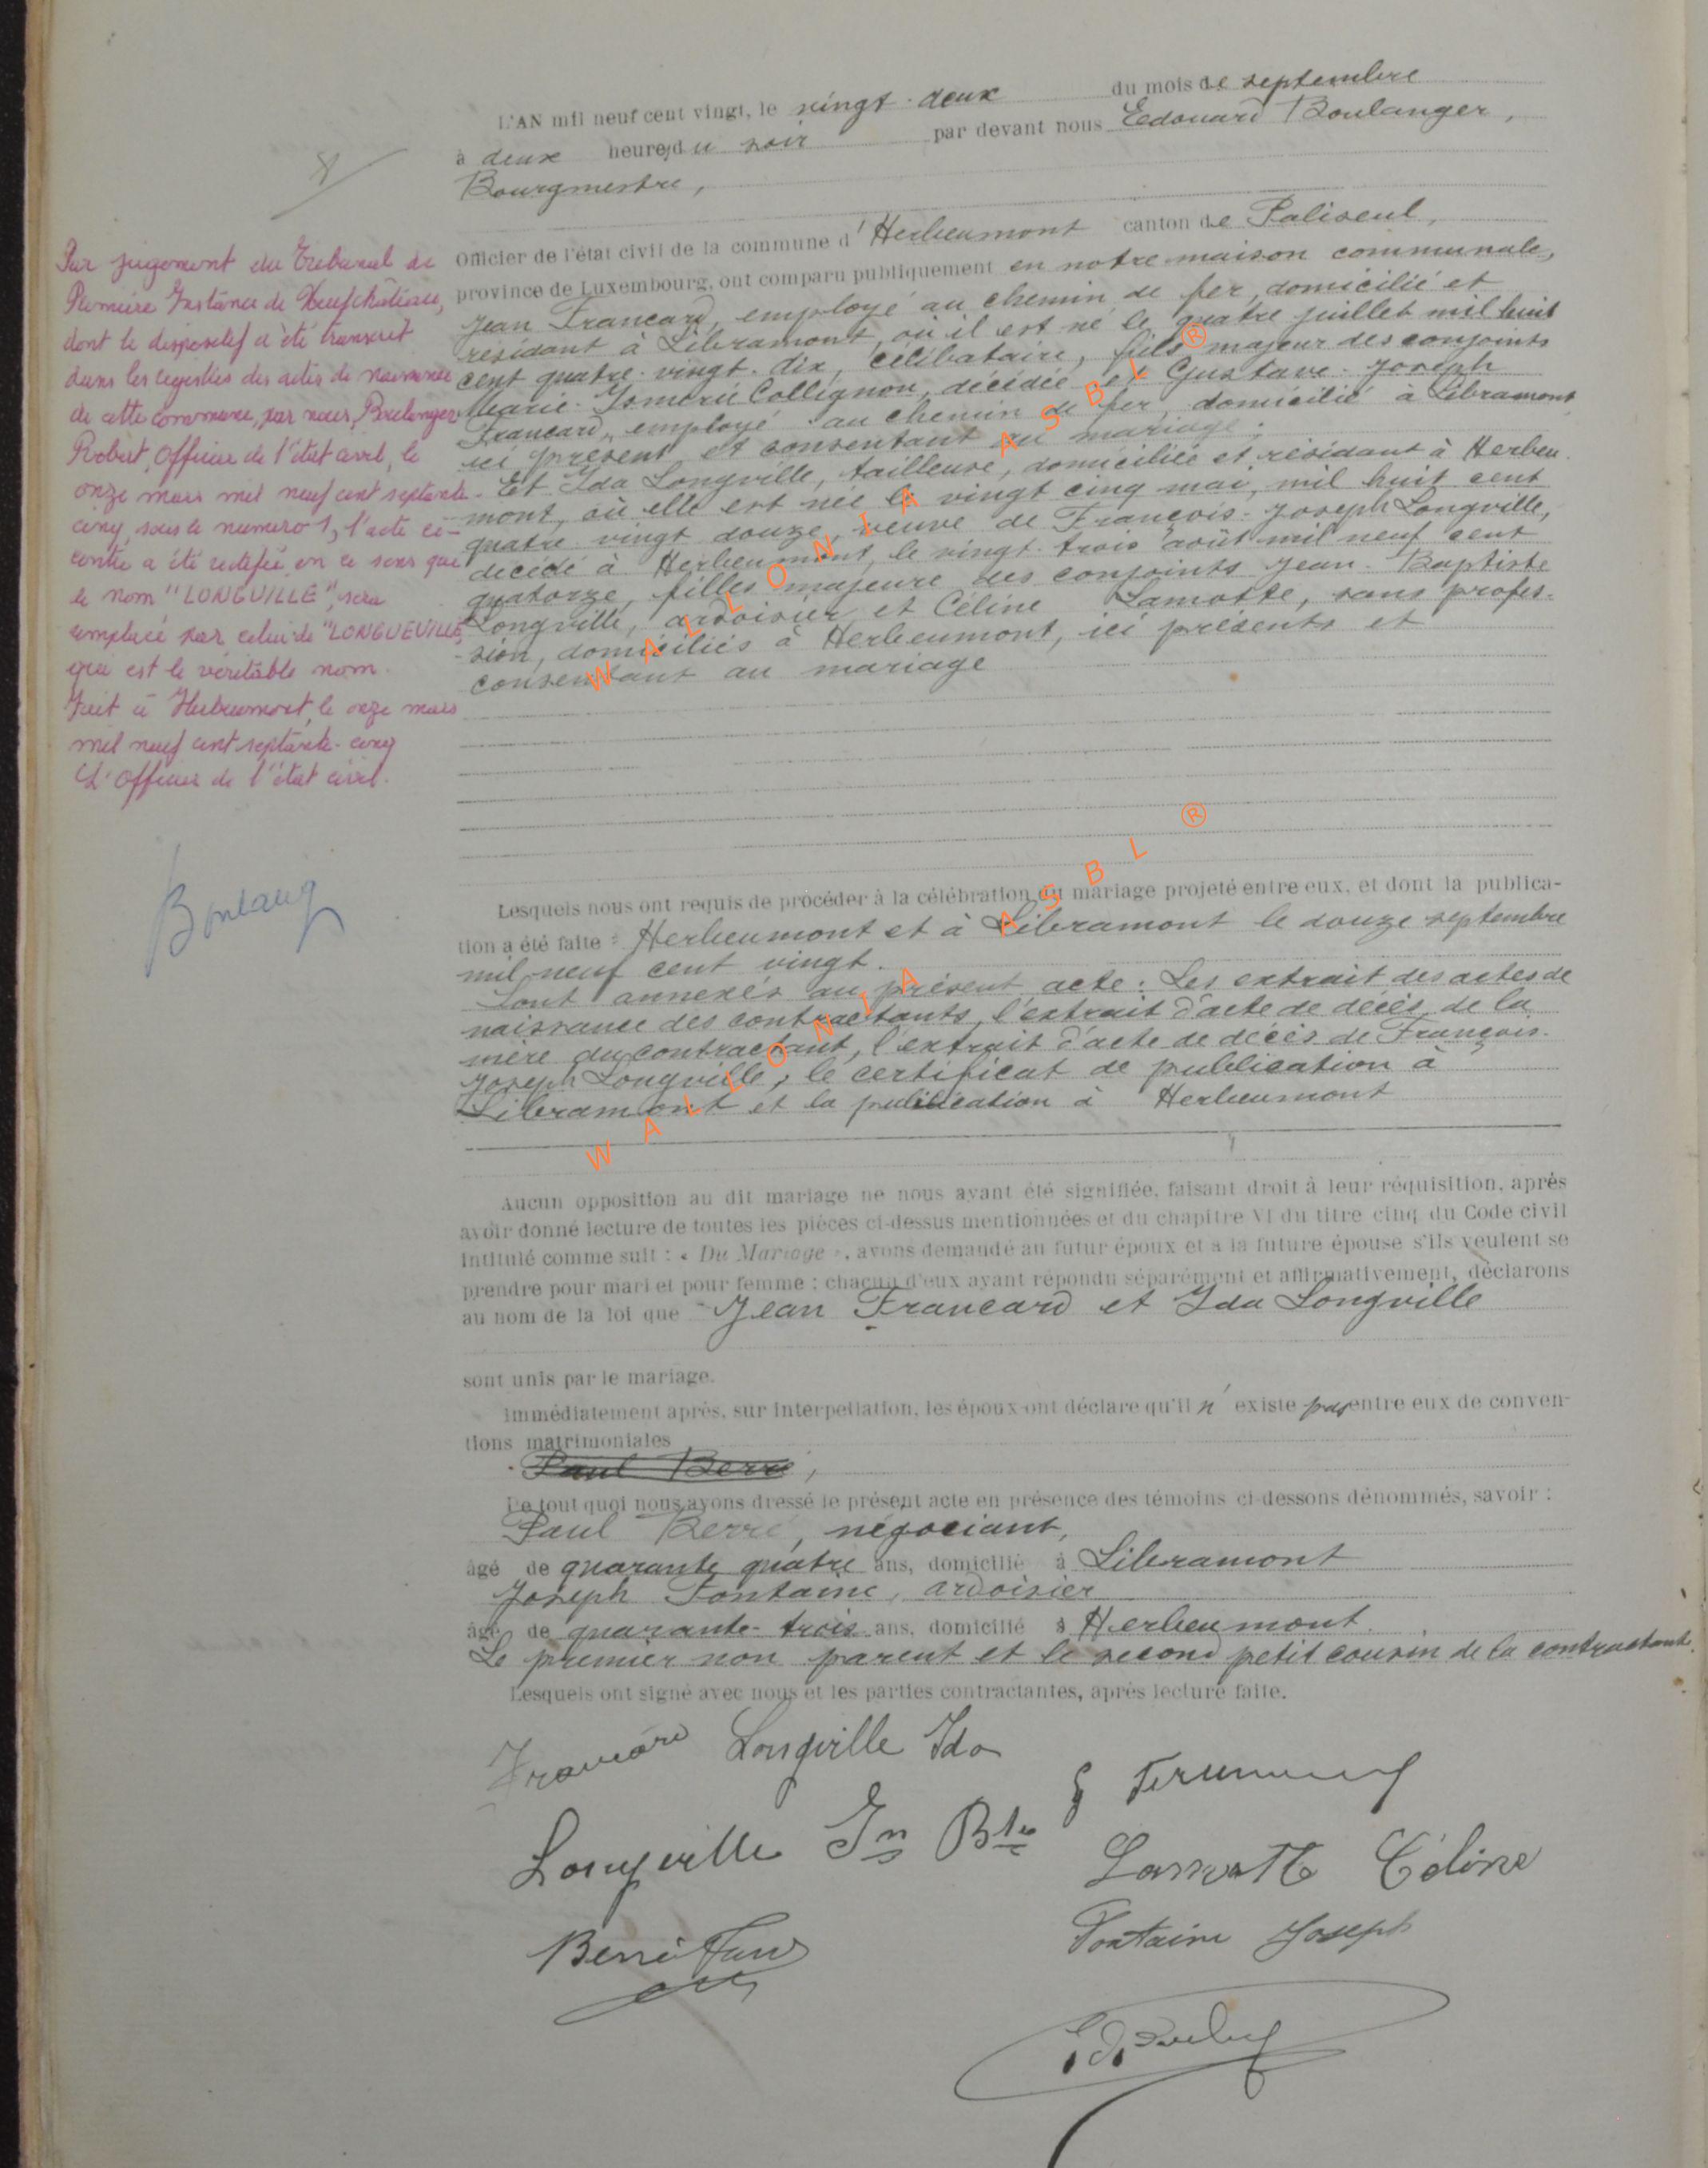 L'AN mil neuf cent vingt, le vingt-deux du mois de septembre
à deux heures du soir par devant nous Edouard Boulanger,
Bourgmestre,
Officier de l'état civil de la commune d'Herbeumont canton de Paliseul,
province de Luxembourg, ont comparu publiquement en notre maison communale,
Jean Francard, employé au chemin de fer, domicilié et
résidant à Libramont, où il est né le quatre juillet mil huit
cent quatre-vingt-dix, célibataire, fils majeur des conjoints
Marie Collignon, décédée et Gustave-Joseph
Francard, employé au chemin de fer, domicilié à Libramont,
ici présent et consentant au mariage;
Et Ida Longville, tailleuse, domiciliée et résidant à Herbeu-
mont, où elle est née le vingt cinq mai, mil huit cent
quatre vingt douze, veuve de François-Joseph Longville,
décédé à Herbeumont, le vingt-trois août mil neuf cent
quatorze, filles majeure des conjoints Jean-Baptiste
Longville, ardoisier et Céline Lamotte, sans profes-
sion, domiciliés à Herbeumont, ici présents et
consentant au mariage
Par jugement du Tribunal de
Première Instance de Neufchâteau,
dont le dispositif a été transcrit
dans les registres des actes de naissance
de cette commune, par nous, Boulanger
Robert, Officier de l'état civil, le
onze mars mil neuf cent septante-
cinq, sous le numéro 1, l'acte ci-
contre a été rectifié en ce sens que
le nom "LONGVILLE", sera
remplacé par celui de "LONGUEVILLE,
qui est le véritable nom.
Fait à Herbeumont, le onze mars
mil neuf cent septante-cinq
L'Officier de l'état civil.
Boulang
Lesquels nous ont requis de procéder à la célébration du mariage projeté entre eux, et dont la publica-
tion a été faite à Herbeumont et à Libramont le douze septembre
mil neuf cent vingt.
Sont annexés au présent acte: Les extrait des actes de
naissance des contractants, l'extrait d'acte de décès de la
mère du contractant, l'extrait d'acte de décès de François-
Joseph Longville, le certificat de publication à
Libramont et la publication à Herbeumont
Aucun opposition au dit mariage ne nous ayant été signifiée, faisant droit à leur réquisition, après
avoir donné lecture de toutes les pièces ci-dessus mentionnées et du chapitre VI du titre cinq du Code civil
intitulé comme suit : « Du Mariage », avons demandé au futur époux et à la future épouse s'ils veulent se
prendre pour mari et pour femme ; chacun d'eux ayant répondu séparément et affirmativement, déclarons
au nom de la loi que Jean Francard et Ida Longville
sont unis par le mariage.
Immédiatement après, sur interpellation, les époux ont déclaré qu'il n'existe pas entre eux de conven-
tions matrimoniales
Paul Berré,
De tout quoi nous avons dressé le présent acte en présence des témoins ci-dessons dénommés, savoir :
Paul Berré, négociant,
âgé de quarante quatre ans, domicilié à Libramont
Joseph Fontaine, ardoisier
âgé de quarante-trois ans, domicilié à Herbeumont.
Le premier non parent et le second petit cousin de la contractante.
Lesquels ont signé avec nous et les parties contractantes, après lecture faite.
Francard Longville Ida
Longville Jn Bte
Lamotte Céline
Berré Paul
Fontaine Joseph
WALLONIA ASBL ®
WALLONIA ASBL ®